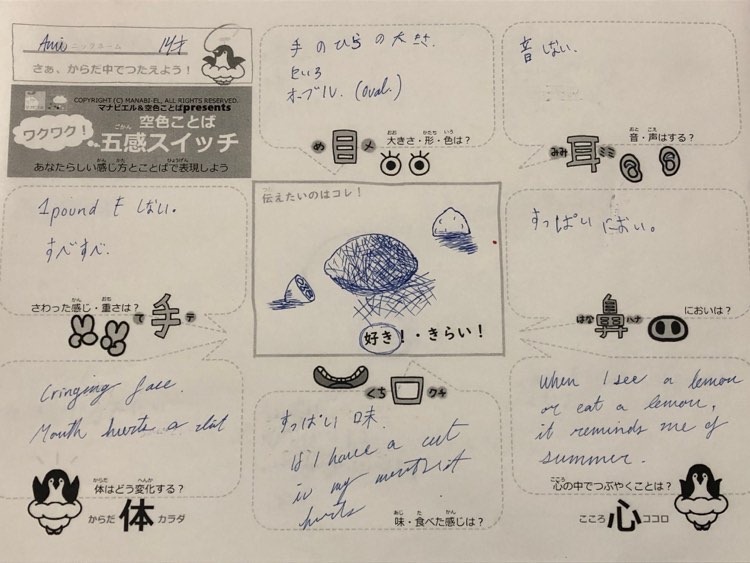 Ami ニックネーム 14才
さぁ、からだ中でつたえよう！
COPYRIGHT (C) MANABI-EL, ALL RIGHTS RESERVED.
マナビエル&空色ことばpresents
ワクワク！
空色ことば
五感スイッチ
ごかん
あなたらしい感じ方とことばで表現しよう
手のひらの大きさ
きいろ
オーブル. (oval.)
め 目 メ
大きさ・形・色は？
音しない.
みみ 耳 ミミ
音・声はする？
1pound もしない。
すべすべ.
さわった感じ・重さは？
て 手 テ
伝えたいのはコレ！
好き！・きらい！
すっぱい におい。
はな 鼻 ハナ
においは？
Cringing face.
Mouth hurts a
体はどう変化する？
からだ 体 カラダ
くち 口 クチ
すっぱい 味.
if I have a cut
in my mouth it
hurts
味・食べた感じは？
When I see a lemon
or eat a lemon,
it reminds me of
summer.
心の中でつぶやくことは？
こころ 心 ココロ